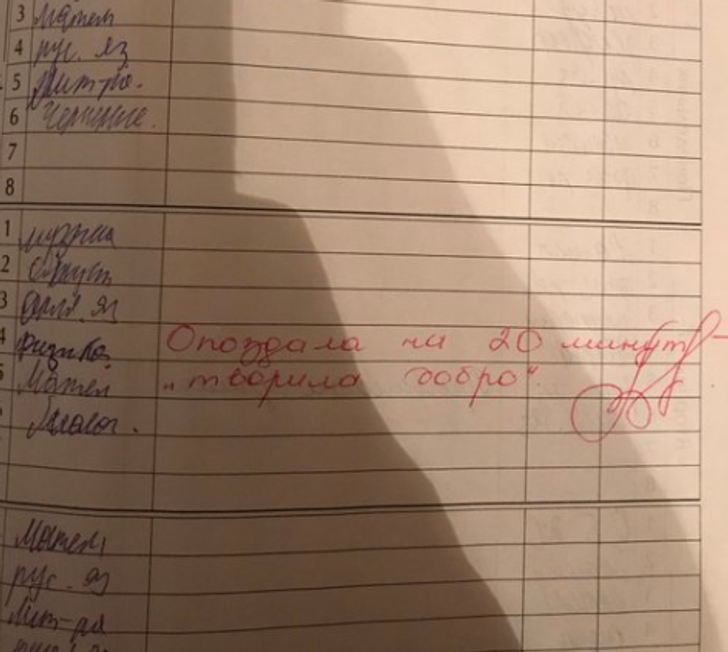 3 матем
4 рус. яз
5 Лит-ра.
6 Черчение.
7
8
1 музыка
2 Обществ
3 Англ. яз
4 физика Опоздала на 20 минут -
5 Матем „творила добро“.
Матем
рус. яз
Лит-ра